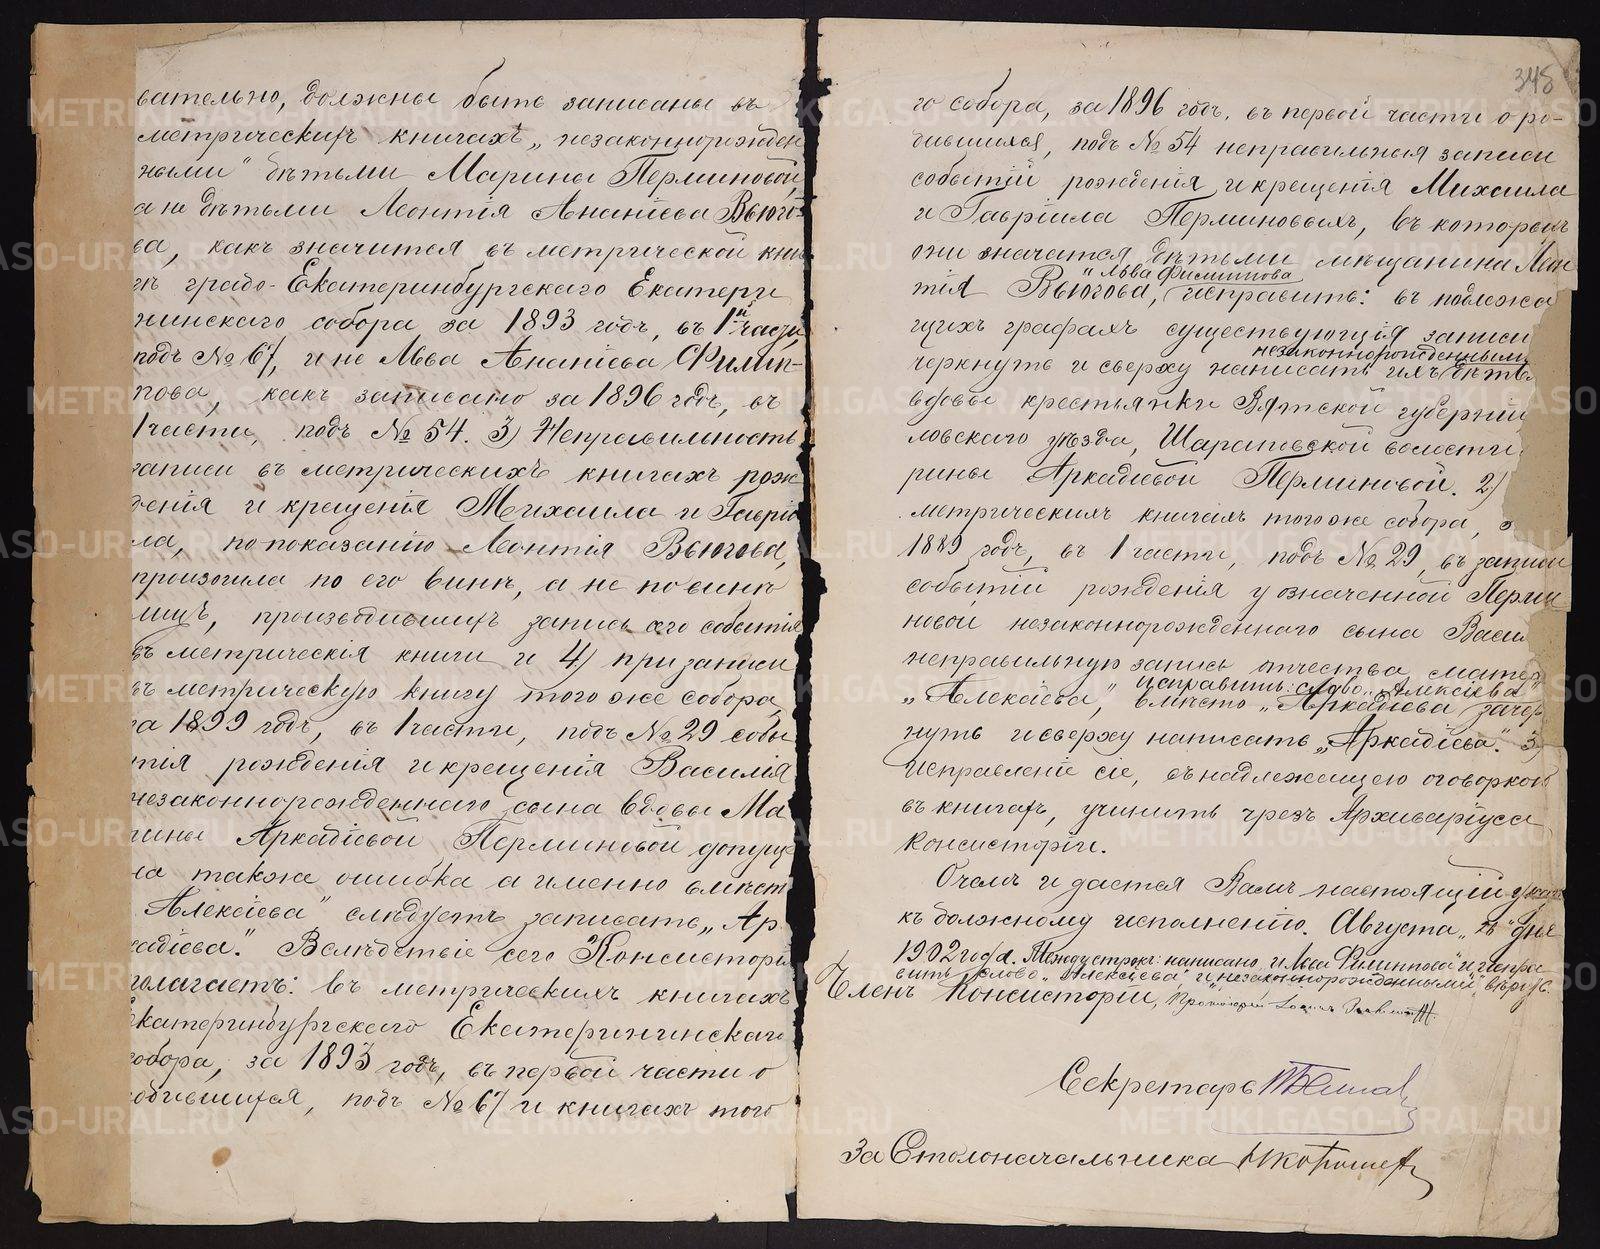 вательно, должны быть записаны въ
метрическихъ книгахъ „незаконнорожден
ными" дѣтьми Марины Перминовой,
а не дѣтьми Леонтія Ананіева Вьюго-
ва, какъ значится въ метрической кни
гѣ градо-Екатеринбургскаго Екатери
нинскаго собора за 1893 годъ, въ 1й части,
подъ № 67, и не Льва Ананіева Филип-
пова, какъ записано за 1896 годъ, въ
1 части, подъ № 54. 3) Неправильность
записи въ метрическихъ книгахъ рож
денія и крещенія Михаила и Гаврiи
ла, по показанію Леонтія Вьюгова,
произошла по его винѣ, а не по винѣ
лицъ, производившихъ запись сего событія
въ метрическія книги и 4) при записи
въ метрическую книгу того же собора,
за 1899 годъ, въ 1 части, подъ № 29 собы
тія рожденія и крещенія Василія
незаконнорожденнаго сына вдовы Ма
рины Аркадіевой Перминовой допуще
на также ошибка а именно вмѣсто
Алексіева" слѣдуетъ записать „Ар
кадіева". Вслѣдствіе сего Консисторія
полагаетъ: въ метрическихъ книгахъ
Екатеринбургскаго Екатерининскаго
собора, за 1893 годъ, въ первой части о
родившихся, подъ № 67 и книгахъ того
348
го собора, за 1896 годъ, въ первой части о ро-
дившихся, подъ № 54 неправильныя записи
событій рожденія и крещенія Михаила
и Гавріила Перминовыхъ, въ которыхъ
они значатся дѣтьми мѣщанина Леон
и Льва Филиппова
тія Вьюгова, исправить: въ подлежа
щихъ графахъ существующія записи
незаконнорожденными
черкнуть и сверху написать ихъ дѣтьми
вдовы крестьянки Вятской губерніи
ловскаго уѣзда, Шараповской волости
рины Аркадіевой Перминовой. 2)
метрическихъ книгахъ того же собора, з
1889 годъ, въ 1 части, подъ № 29, въ записи
событіи рожденія у означенной Перми
новой незаконнорожденнаго сына Васи
неправильную запись отчества матери
исправить: слово „Алексіева"
„Алексіева", вмѣсто „Аркадіева" зачер
кнуть и сверху написать „Аркадіева". 3)
Исправленіе сіе, съ надлежащею оговоркою
въ книгахъ, учинить чрезъ Архиваріуса
Консисторіи.
О чемъ и дается Вамъ настоящій указъ
къ должному исполненію. Августа дня
1902 года. Между строкъ: написано „и Льва Филиппова" и „испра
вить слово „Алексіева" и „незаконнорожденными", вѣрить.
Членъ Консисторіи, Протоіерей
Секретарь
За Столоначальника